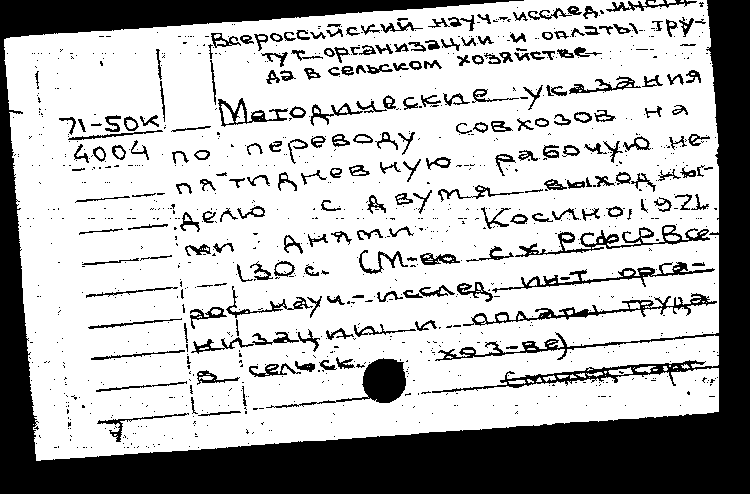 Всероссийский науч.-исслед. инсти-
тут организации и оплаты тру-
да в сельском хозяйстве.
71-50к
4004
Методические указания
по переводу совхозов на
пятидневную рабочую не-
делю с двумя выходны-
ми днями. Косино, 1971.
130 с. (М-во с.х. РСФСР. Все-
рос. науч.-исслед. ин-т орга-
низации и оплаты труда
в сельск. хоз-ве)
См. след. карт.
7